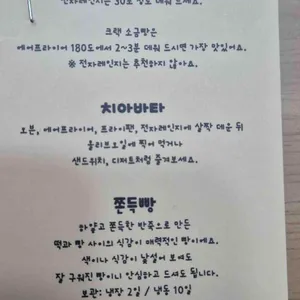 전자레인지는 30초 정도 데워 드세요.
크랙 소금빵은
에어프라이어 180도에서 2~3분 데워 드시면 가장 맛있어요.
※ 전자레인지는 추천하지 않아요.
치아바타
오븐, 에어프라이어, 프라이팬, 전자레인지에 살짝 데운 뒤
올리브오일에 찍어 먹거나
샌드위치, 디저트처럼 즐겨보세요.
쫀득빵
하얗고 쫀득한 반죽으로 만든
떡과 빵 사이의 식감이 매력적인 빵이에요.
색이나 식감이 낯설어 보여도
잘 구워진 빵이니 안심하고 드셔도 됩니다.
보관: 냉장 2일 / 냉동 10일